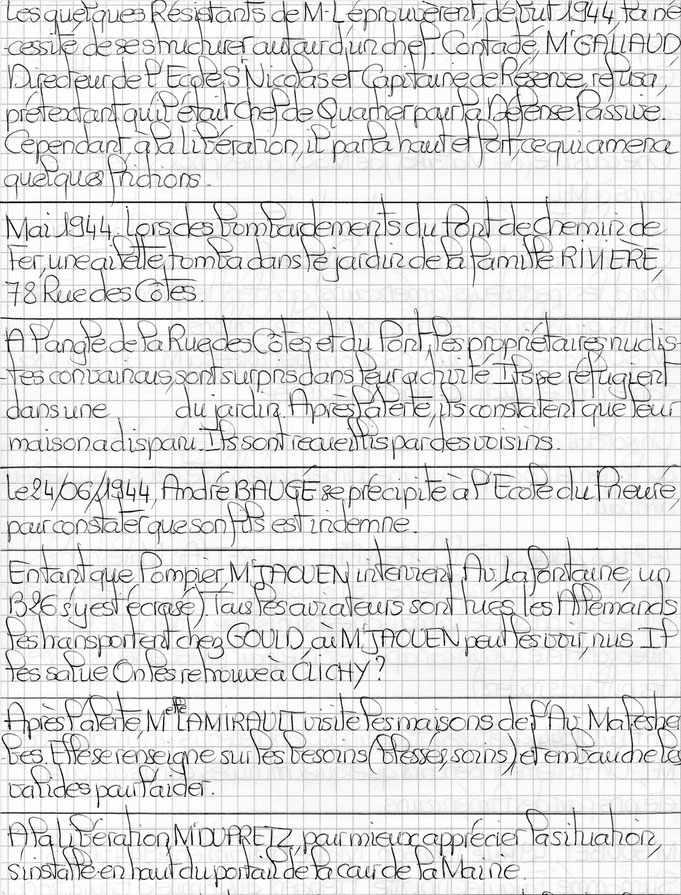 Les quelques Résistants de M.L éprouvèrent, début 1944, la né
-cessité de se structurer autour d'un chef. Contacté, Mr GALLAUD
Directeur de l'Ecole St Nicolas et Capitaine de Réserve, refusa,
prétextant qu'il était Chef de Quartier pour la Défense Passive.
Cependant, à la libération, il parla haut et fort, ce qui amena
quelques frictions.
Mai 1944. Lors des bombardements du Pont de Chemin de
Fer, une ailette, tomba dans le jardin de la famille RIVIÈRE,
78 Rue des Côtes.
A l'angle de la Rue des Côtes et du Pont, les propriétaires nudis-
-tes convaincus, sont surpris dans leur activité. Ils se réfugient
dans une du jardin. Après l'alerte, ils constatent que leur
maison a disparu. Ils sont recueillis par des voisins.
Le 24/06/1944, André BAUGÉ se précipite à l'Ecole du Prieuré,
pour constater que son fils est indemne.
En tant que Pompier, Mr JAOUEN intervient, Av. Lafontaine, un
B26 s'y est écrasé). Tous les aviateurs sont tués, les Allemands
les transportent chez GOULD, où Mr JAOUEN peut les voir, nus. Il
les salue. On les retrouve à CLICHY ?
Après l'alerte, Melle LAMIRAULT visite les maisons de l'Av. Malesher
-bes. Elle se renseigne sur les besoins (blessés, soins), et embauche les
valides pour l'aider.
A la libération, Mr DUPRETZ, pour mieux apprécier la situation,
s'installe en haut du portail de la cour de la Mairie.